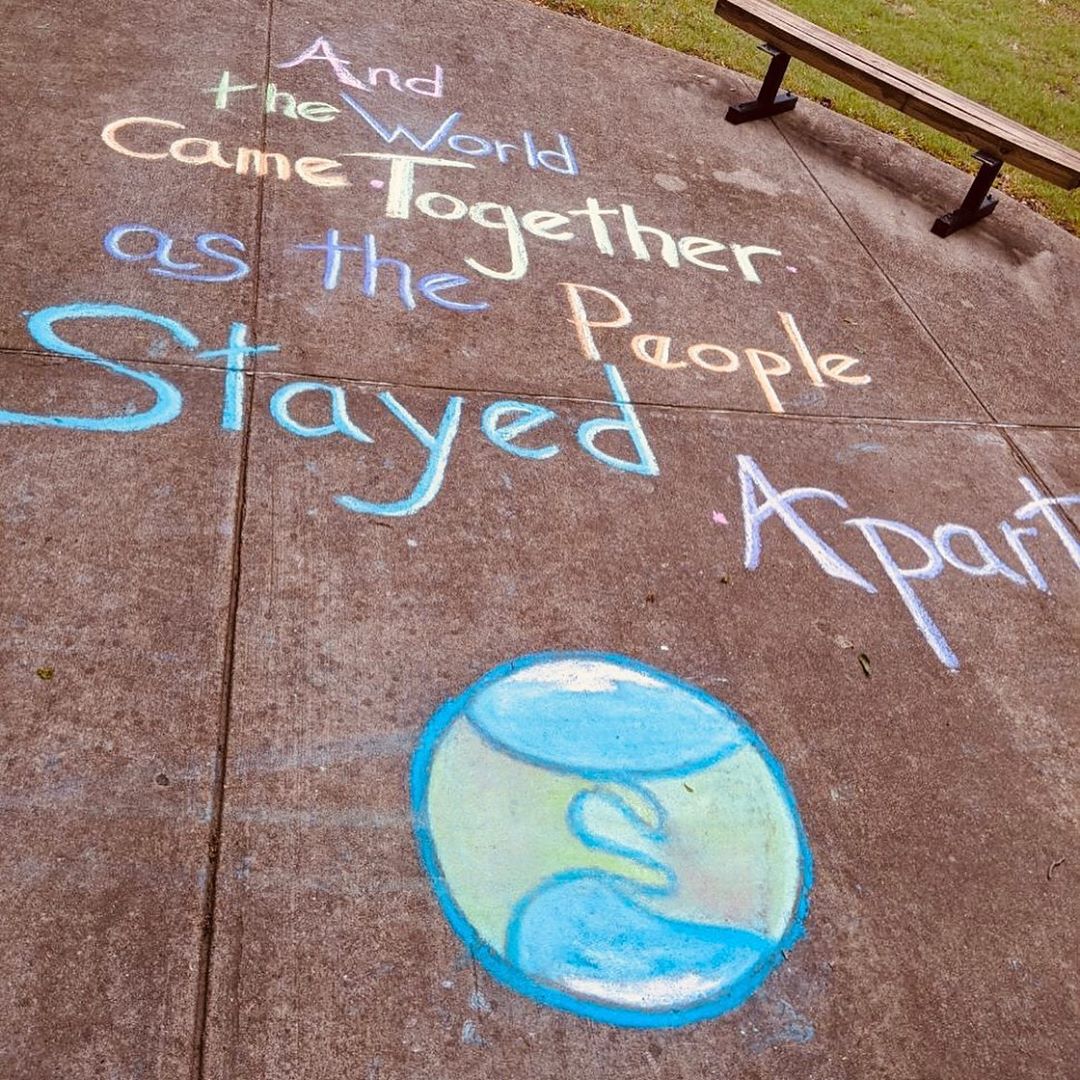 And
the World
Came Together
as the People
Stayed
Apart